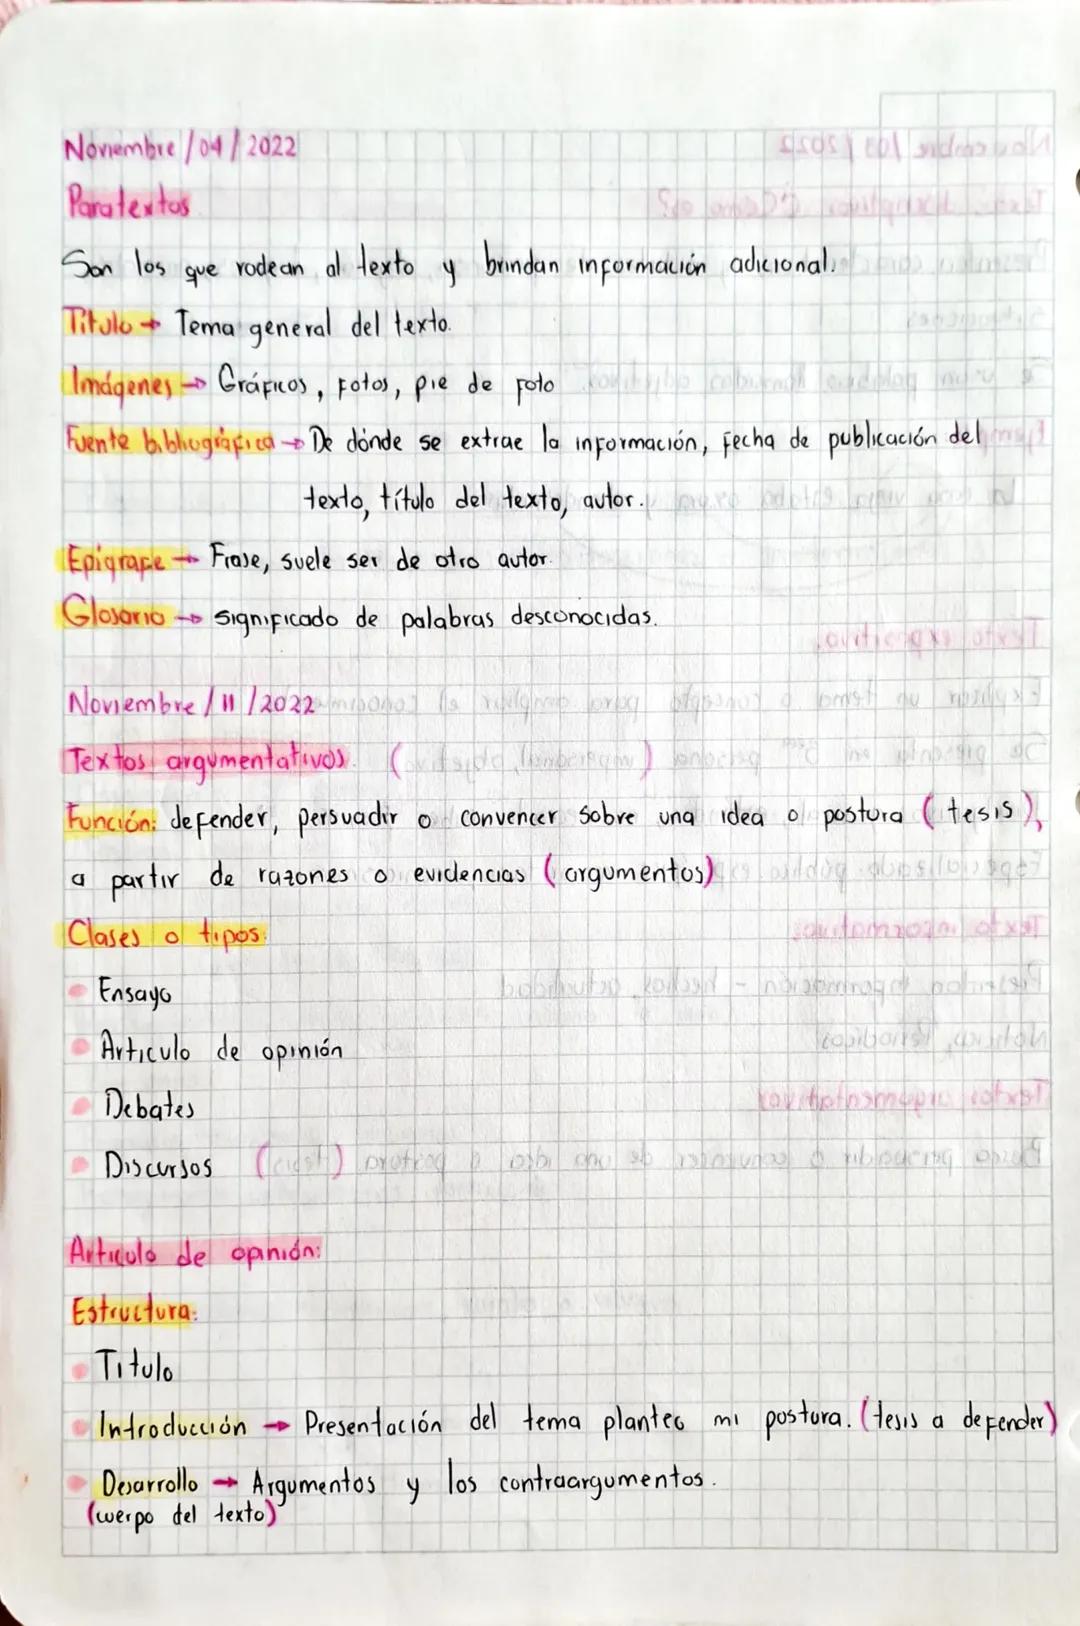 Noviembre/04/2022
Paratextos
Son los que rodean al texto y brindan información adicional.
Título → Tema general del texto.
Imágenes → Gráficos, fotos, pie de foto
Fuente bibliográfica → De dónde se extrae la información, fecha de publicación del
texto, título del texto, autor.
Epígrafe → Frase, suele ser de otro autor.
Glosario → significado de palabras desconocidas.
Noviembre/11/2022
Textos argumentativos.
Función: defender, persuadir o convencer sobre una idea o postura (tesis),
a partir de razones o evidencias (argumentos)
Clases o tipos:
• Ensayo
• Artículo de opinión
• Debates
• Discursos
Artículo de opinión:
Estructura:
• Título
• Introducción → Presentación del tema planteo mi postura. (tesis a defender)
• Desarrollo → Argumentos y los contraargumentos.
(cuerpo del texto)